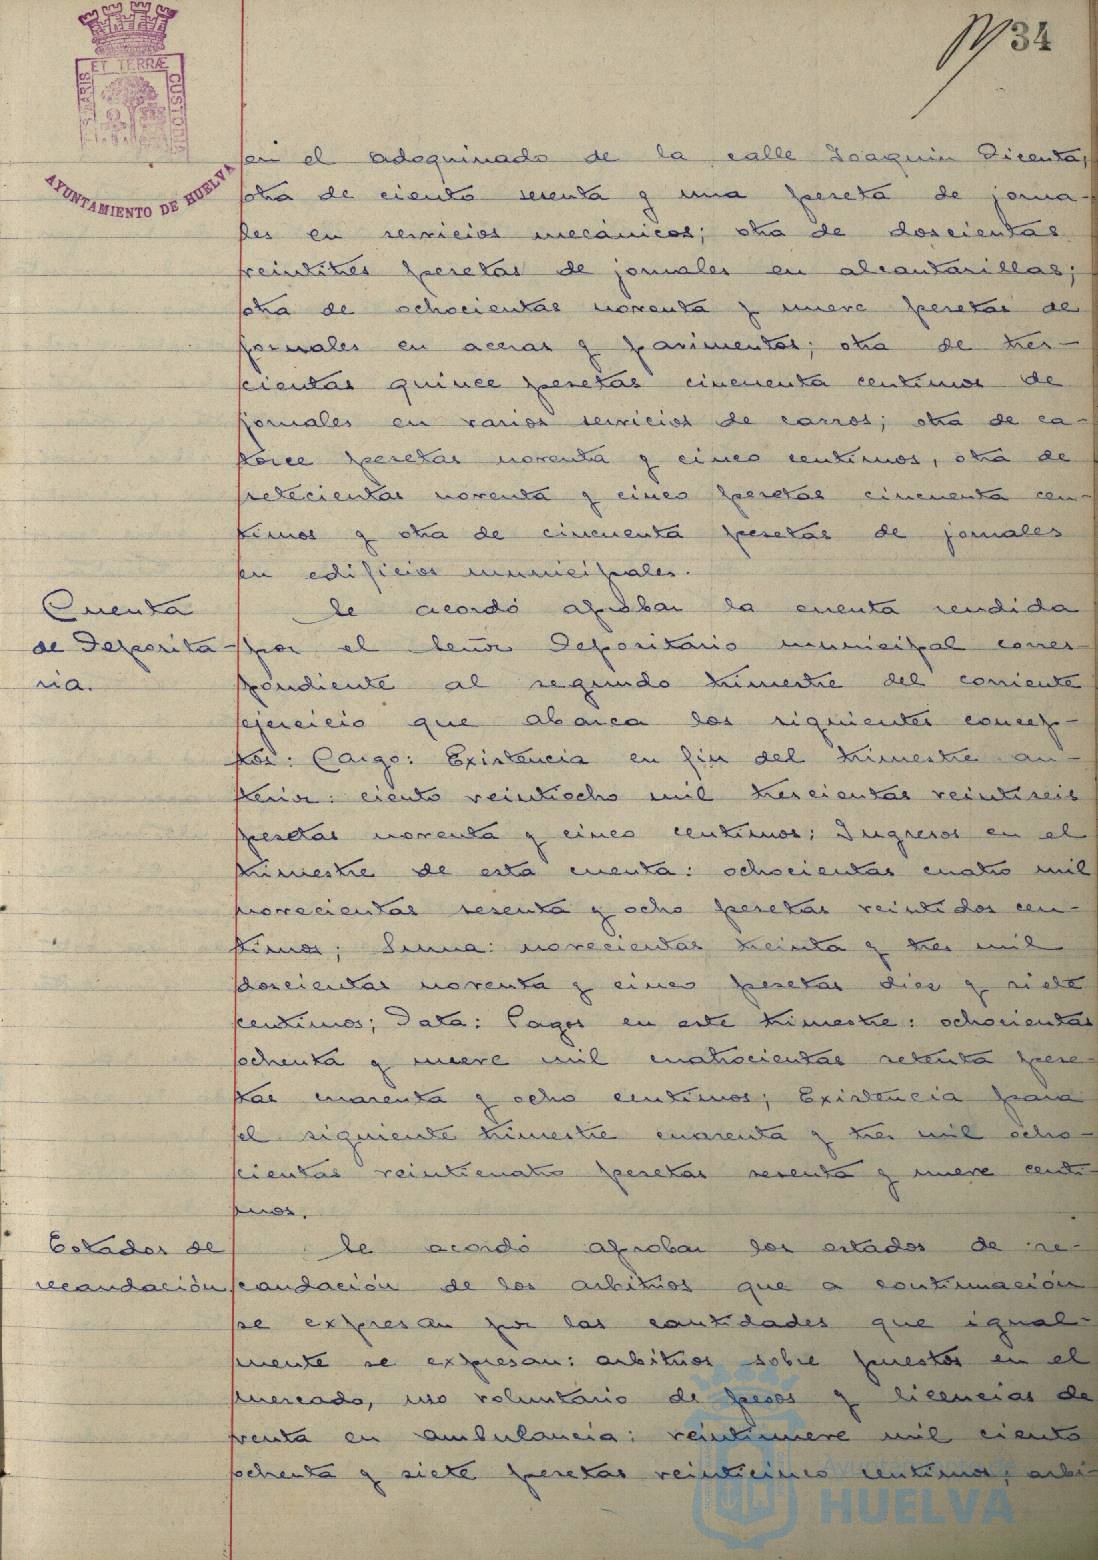 34
ET TERRÆ
MARIS
CUSTODIA
AYUNTAMIENTO DE HUELVA
en el adoquinado de la calle Joaquin Dicenta,
otra de ciento sesenta y una peseta de jorna-
les en servicios mecánicos; otra de doscientas
veintitres pesetas de jornales en alcantarillas;
otra de ochocientas noventa y nueve pesetas de
jornales en aceras y pavimentos; otra de tres-
cientas quince pesetas cincuenta centimos de
jornales en varios servicios de carros; otra de ca-
torce pesetas noventa y cinco centimos, otra de
setecientas noventa y cinco pesetas cincuenta cen-
timos y otra de cincuenta pesetas de jornales
en edificios municipales.
Cuenta
de Deposita-
ria.
Se acordó aprobar la cuenta rendida
por el Señor Depositario municipal corres-
pondiente al segundo trimestre del corriente
ejercicio que abarca los siguientes concep-
tos: Cargo: Existencia en fin del trimestre an-
terior: ciento veintiocho mil trescientas veintiseis
pesetas noventa y cinco centimos; Ingresos en el
trimestre de esta cuenta: ochocientas cuatro mil
novecientas sesenta y ocho pesetas veintidos cen-
timos; Suma: novecientas treinta y tres mil
doscientas noventa y cinco pesetas diez y siete
centimos; Data: Pagos en este trimestre: ochocientas
ochenta y nueve mil cuatrocientas setenta pese-
tas cuarenta y ocho centimos; Existencia para
el siguiente trimestre cuarenta y tres mil ocho-
cientas veinticuatro pesetas sesenta y nueve centi-
mos.
Estados de
recaudación
Se acordó aprobar los estados de re-
caudación de los arbitrios que a continuación
se expresan por las cantidades que igual-
mente se expresan: arbitrios sobre puestos en el
mercado, uso voluntario de pesos y licencias de
venta en ambulancia: veintinueve mil ciento
ochenta y siete pesetas veinticinco centimos; arbi-
Ayuntamiento de
HUELVA